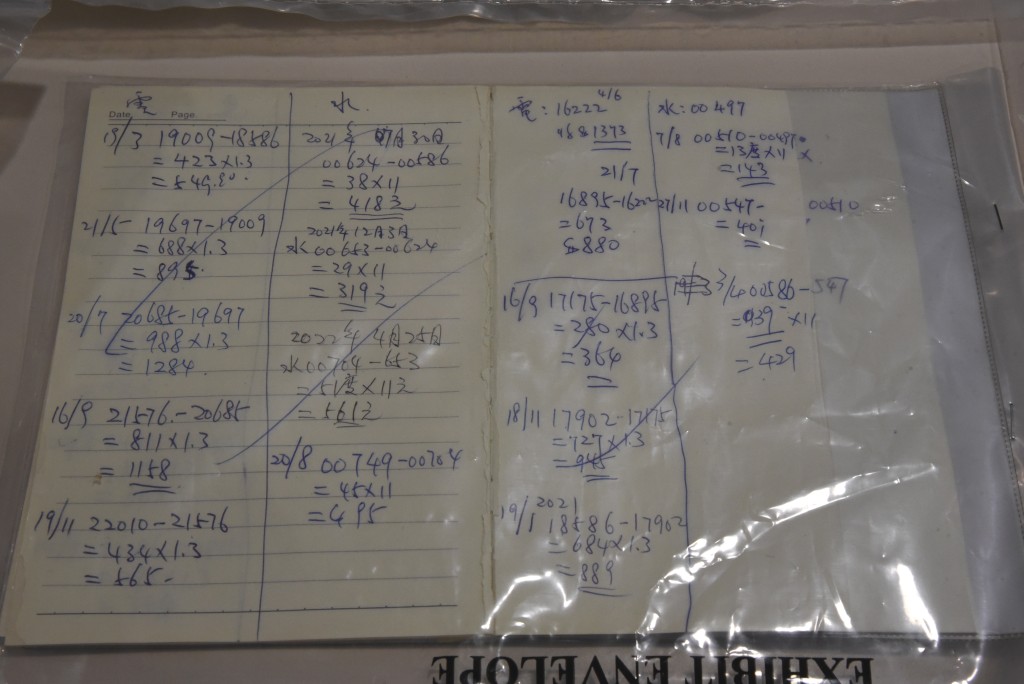 電
Date Page
19/3 19009-18586
= 423×1.3
= 549.90.
21/5 19697-19009
= 688×1.3
= 895.
20/7 20685-19697
= 988×1.3
= 1284.
16/9 21576-20685
= 811×1.3
= 1158
19/11 22010-21576
= 434×1.3
= 565-
水.
2021年 07月30日
00624-00586
= 38×11
= 418元
2021年12月3日
水00653-00624
= 29×11
= 319元
2022年 4月25日
水00704-653
= 51度×11元
= 561元
20/8 00749-00704
= 45×11
= 495
電: 16222 4/6
1373
21/7
16895-1622
= 673
880
16/9 17175-16895
= 280×1.3
= 364
18/11 17902-17175
= 727×1.3
= 945
19/1 2021 18586-17902
= 684×1.3
= 889
水: 00497
7/8 00510-00497
= 13度×11
= 143
27/11 00547-00510
= 407
00586-547
= 039 ×11
= 429
EXHIBIT ENVELOPE